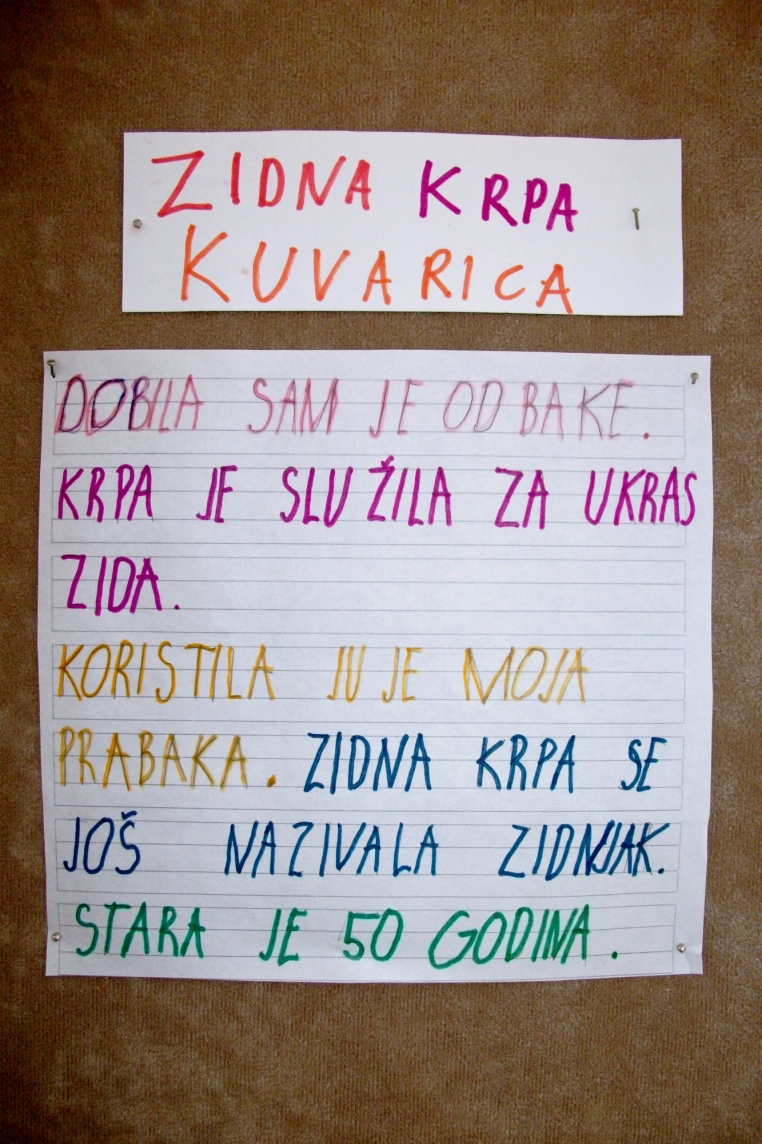 ZIDNA KRPA
KUVARICA
DOBILA SAM JE OD BAKE.
KRPA JE SLUŽILA ZA UKRAS
ZIDA.
KORISTILA JU JE MOJA
PRABAKA. ZIDNA KRPA SE
JOŠ NAZIVALA ZIDNJAK.
STARA JE 50 GODINA.